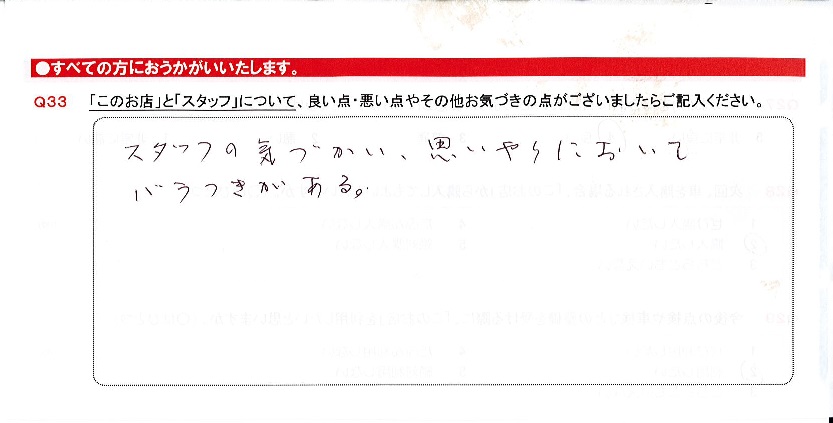 ●すべての方におうかがいいたします。
Q33 「このお店」と「スタッフ」について、良い点・悪い点やその他お気づきの点がございましたらご記入ください。
スタッフの気づかい、思いやりにおいて
バラつきがある。